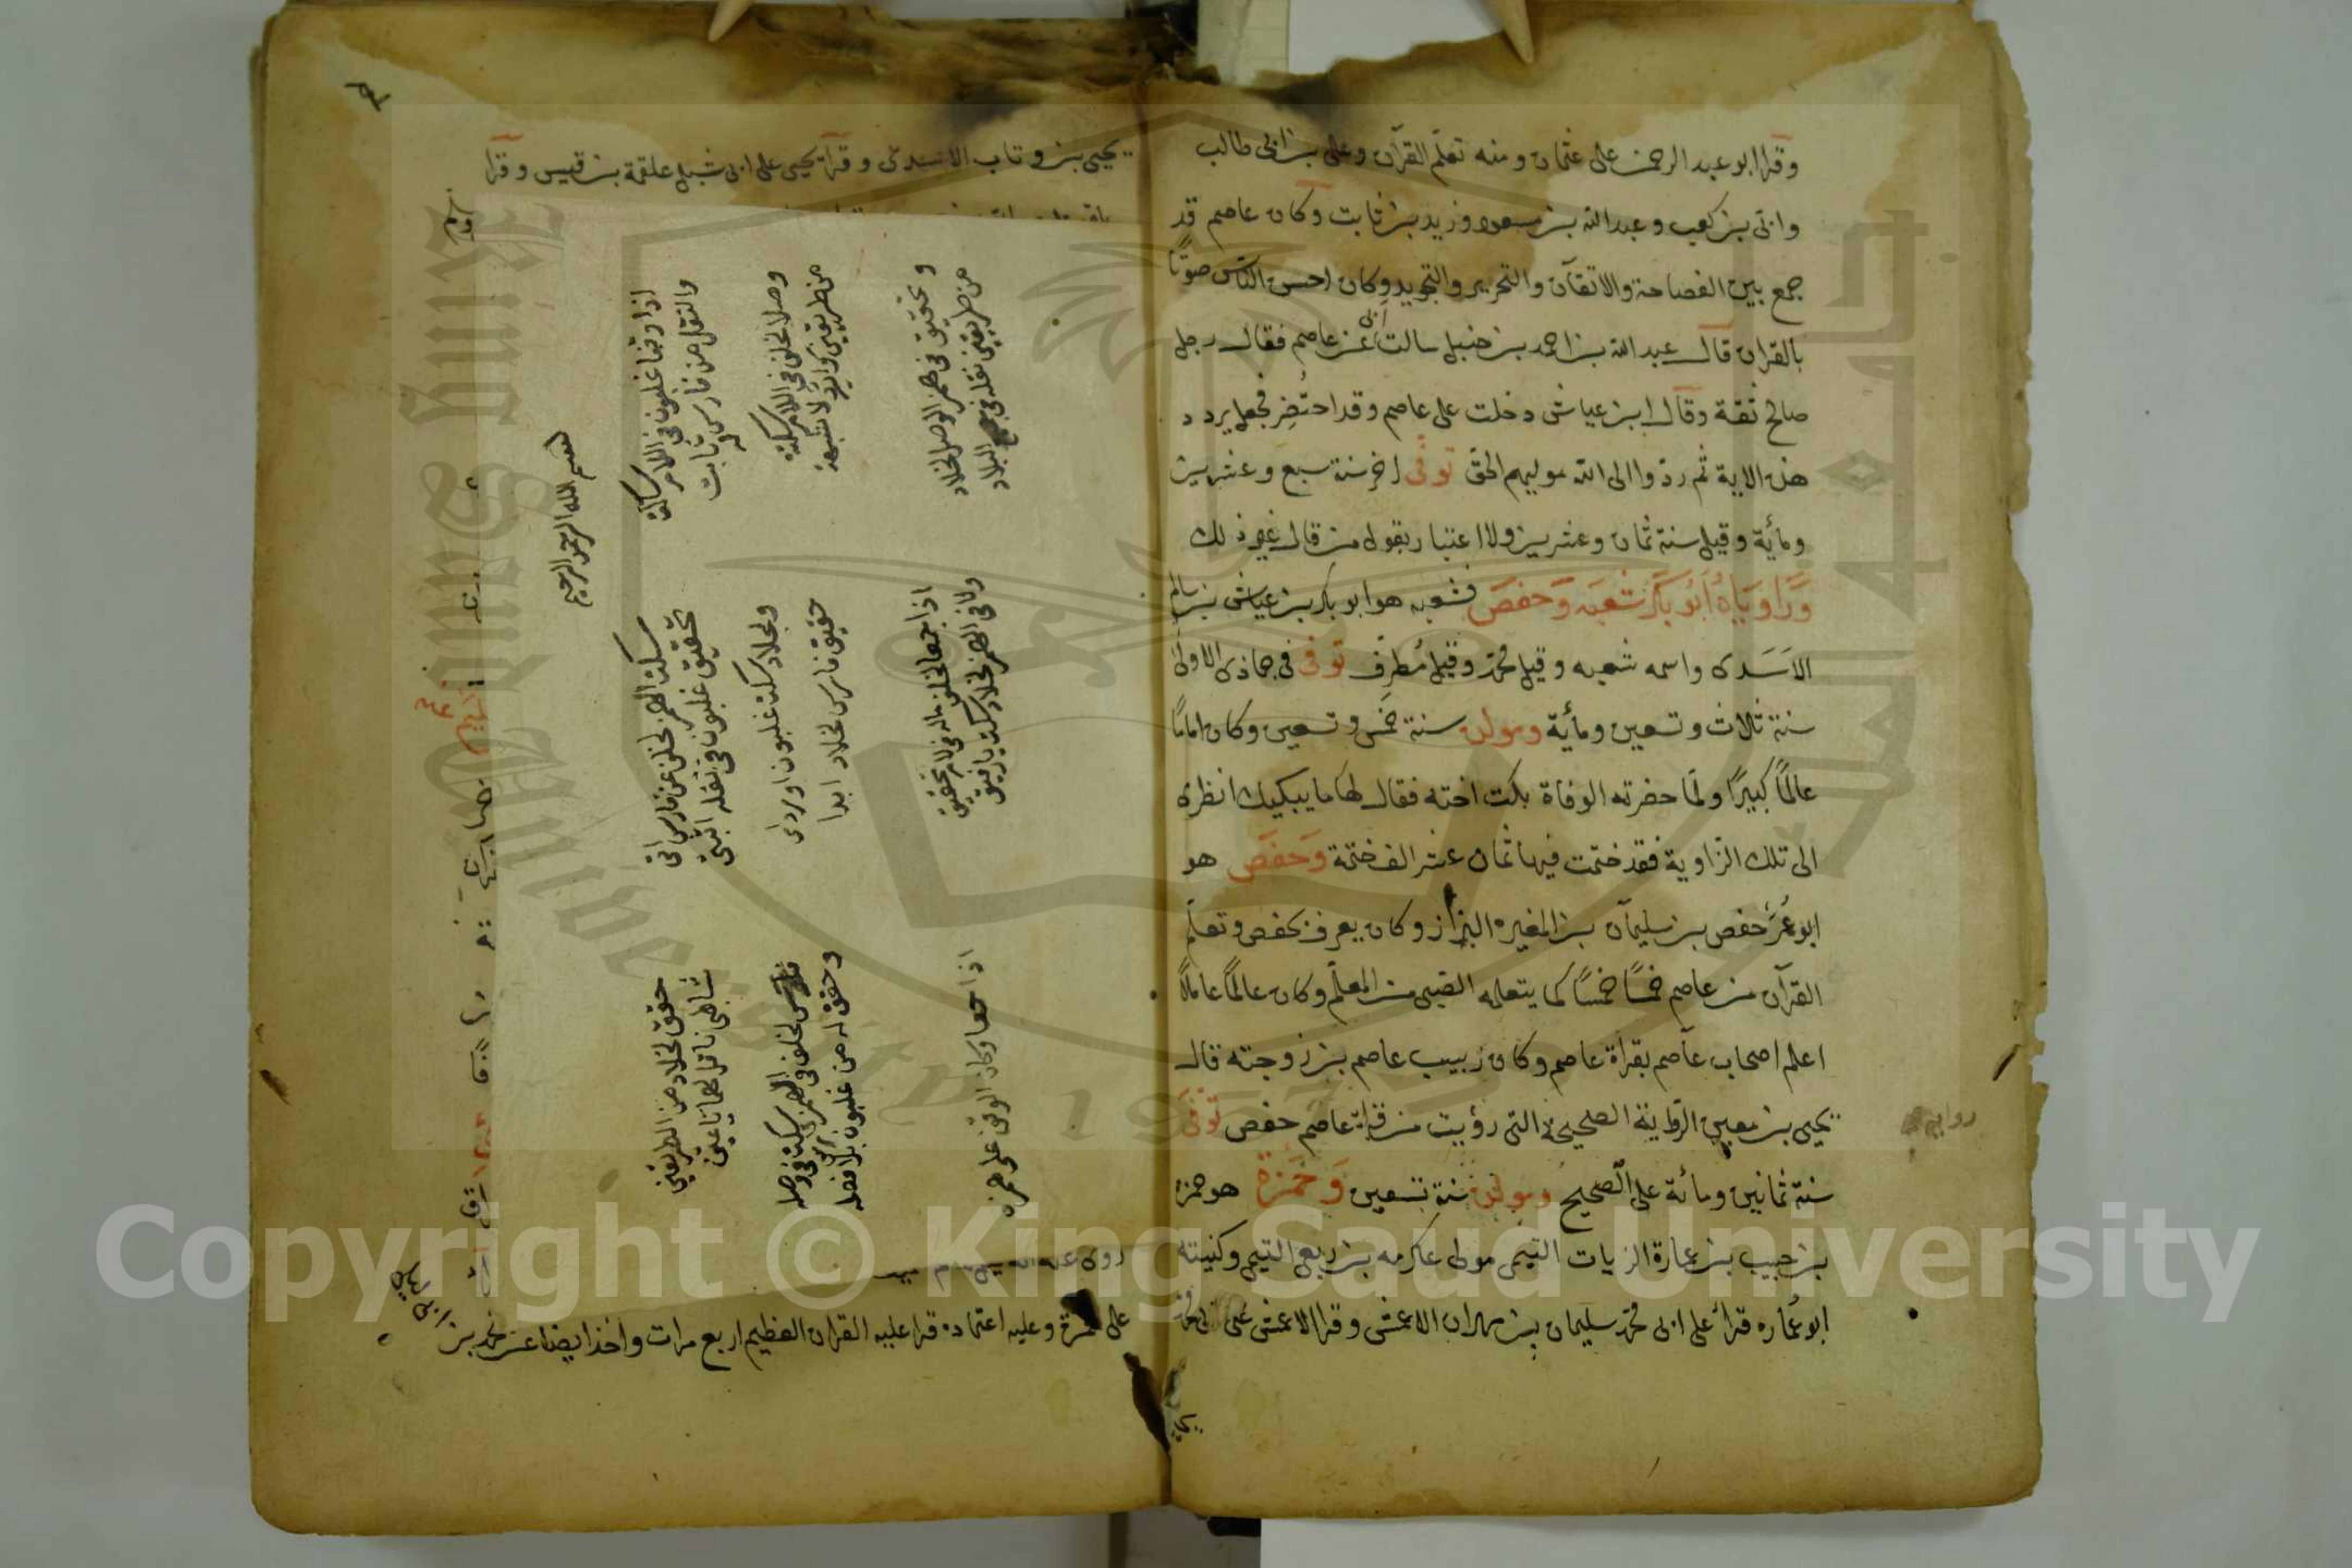 وقرا ابو عبد الرحمن على عثمان ومنه تعلّم القرآن وعلى بن ابى طالب
وابىّ بن كعب وعبد الله بن مسعود وزيد بن ثابت وكان عاصم قد
جمع بين الفصاحة والاتقان والتحرير والتجويد وكان احسن الناس صوتًا
بالقران قال عبد الله بن احمد بن حنبل سالت ابى عن عاصم فقال رجل
صالح ثقة وقال ابن عياش دخلت على عاصم وقد احتُضِر فجعل يردد
هذه الاية ثم ردّوا الى الله موليهم الحق توفى اخر سنة سبع وعشرين
ومأية وقيل سنة ثمان وعشرين ولا اعتبار بقول من قال غير ذلك
وَرَاوِيَاهُ اَبُو بَكْر شُعبَه وَحَفص فشعبه هو ابو بكر بن عياش بن سالم
الاَسَدى واسمه شعبه وقيل محمّد وقيل مُطرِف توفى فى جماذى الاولى
سنة ثلاث وتسعين ومأية ومولده سنة خمس وتسعين وكان امامًا
عالمًا كبيرًا ولمّا حضرته الوفاة بكت اخته فقال لها ما يبكيك انظرى
الى تلك الزاوية فقد ختمت فيها ثمان عشر الف ختمة وَحَفص هو
ابو عُمَر حفص بن سليمان بن المغيره البزاز وكان يعرف بحفص وتعلّم
القرآن من عاصم خمسًا خمسًا كما يتعلمه الصبى من المعلّم وكان عالمًا عاملًا
اعلم اصحاب عاصم بقراة عاصم وكان ربيب عاصم بن زوجته قال
يحيى بن معين الرواية الصحيحة التى رؤيت من قراءة عاصم حفص توفى
سنة ثمانين ومائة على الصحيح ومولده سنة تسعين وَحَمزَة هو حمزة
بن حبيب بن عمارة الزيات التيمى مولى عكرمه بن ربعى التيمى وكنيته
ابو عُماره قرأ على ابى محمّد سليمان بن مهران الاعمش وقرا الاعمش على ابى محمّد
يحيى
يحيى بن وثاب الاسدى وقرأ يحيى على ابى شبل علقمة بن قيس وقرا
بسم الله الرحمن الرحيم
اذا وقفا غلبون فى اللام سكتة
والنقل من فارس ثابت
سكت الهمز لخلف عن فارس اتى
تحقيق غلبون فى نقله اثبتى
حقق لخلاد من الطريقين
شاطبى ناقل لهما يا عينى
وصلا لخلف فى اللام سكتة
من طريقين لا شبهة
ولخلاد سكت غلبون اوردا
حقيق فارس لخلاد ابدا
فارس لخلف فى الهمز سكت فى وصله
وحقق له من غلبون بلا فصله
وتحقيق فى همز الوصل لخلاد
من طريقين نقله فى جميع البلاد
اذا جمعا لخلف ماله فى لام تحقيق
ولا فى الهمز لخلاد سكت يا رفيق
اذا جمعا وكان الوقف على همزه
على حمزة وعليه اعتماده قرا عليه القران العظيم اربع مرات واخذ ايضا عن محمد بن
ابى ليلى
Copyright © King Saud University
King Saud University
1957